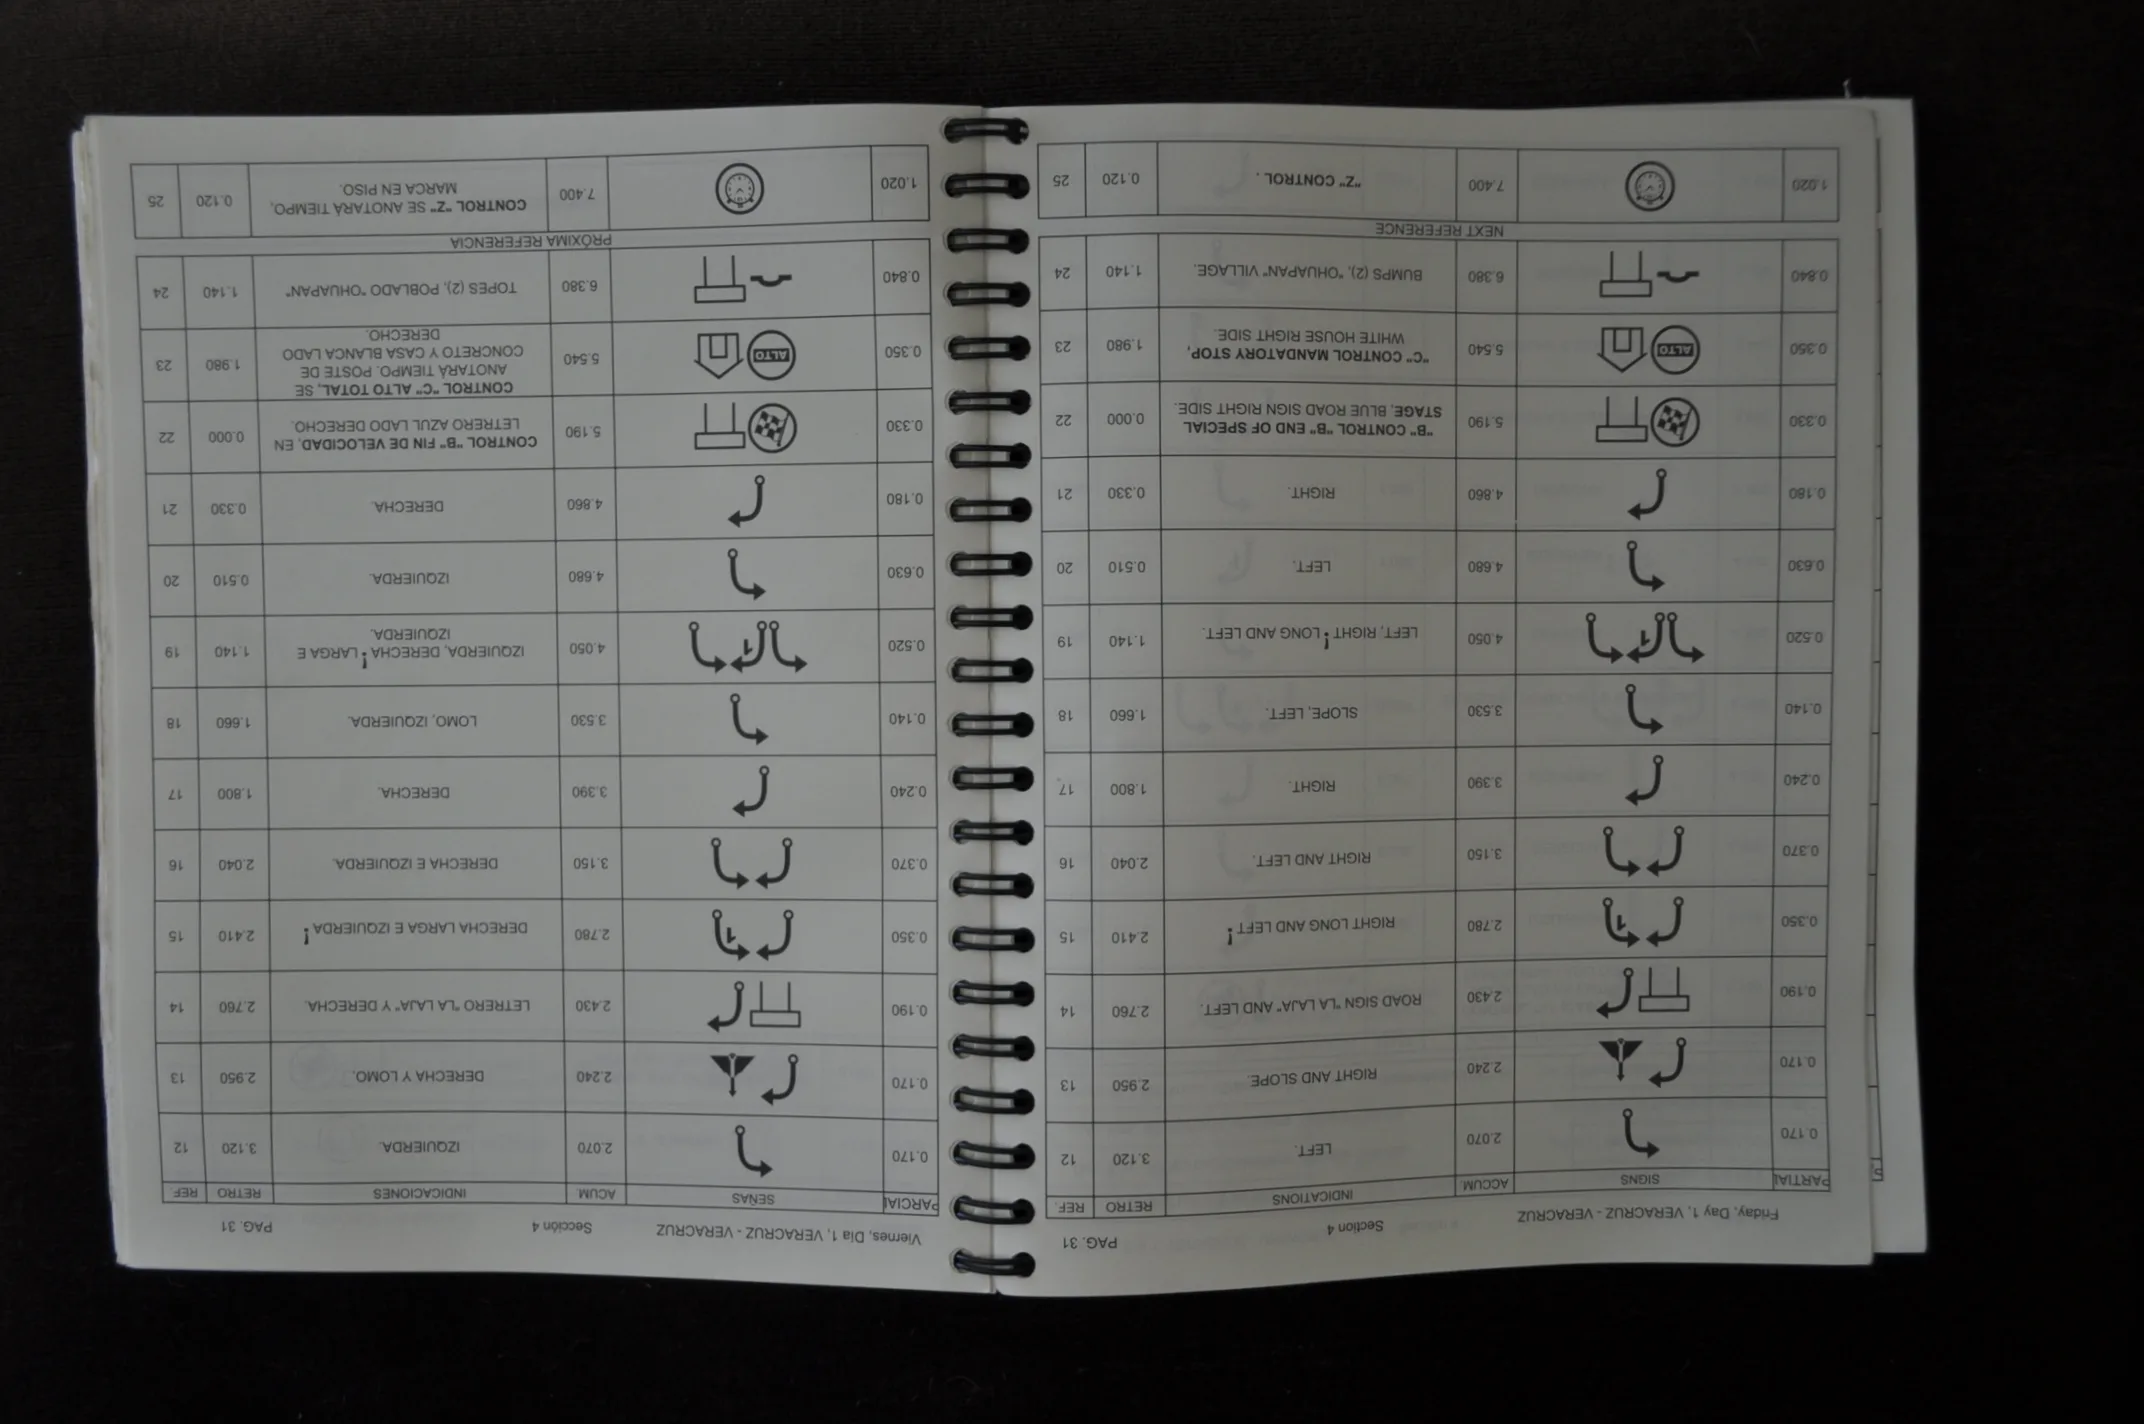 Friday, Day 1, VERACRUZ - VERACRUZ Section 4 PAG. 31
PARTIAL SIGNS ACCUM INDICATIONS RETRO REF.
0.170 2.070 LEFT. 3.120 12
0.170 2.240 RIGHT AND SLOPE. 2.950 13
0.190 2.430 ROAD SIGN "LA LAJA" AND LEFT. 2.760 14
0.350 1 2.780 RIGHT LONG AND LEFT ! 2.410 15
0.370 3.150 RIGHT AND LEFT. 2.040 16
0.240 3.390 RIGHT. 1.800 17
0.140 3.530 SLOPE, LEFT. 1.660 18
0.520 1 4.050 LEFT, RIGHT ! LONG AND LEFT. 1.140 19
0.630 4.680 LEFT. 0.510 20
0.180 4.860 RIGHT. 0.330 21
0.330 5.190 "B" CONTROL "B" END OF SPECIAL 0.000 22
STAGE, BLUE ROAD SIGN RIGHT SIDE.
0.350 ALTO 5.540 "C" CONTROL MANDATORY STOP, 1.980 23
WHITE HOUSE RIGHT SIDE.
0.840 6.380 BUMPS (2), "OHUAPAN" VILLAGE. 1.140 24
NEXT REFERENCE
1.020 7.400 "Z" CONTROL . 0.120 25
Viernes, Dia 1, VERACRUZ - VERACRUZ Sección 4 PAG. 31
PARCIAL SEÑAS ACUM. INDICACIONES RETRO REF
0.170 2.070 IZQUIERDA. 3.120 12
0.170 2.240 DERECHA Y LOMO. 2.950 13
0.190 2.430 LETRERO "LA LAJA" Y DERECHA. 2.760 14
0.350 1 2.780 DERECHA LARGA E IZQUIERDA ! 2.410 15
0.370 3.150 DERECHA E IZQUIERDA. 2.040 16
0.240 3.390 DERECHA. 1.800 17
0.140 3.530 LOMO, IZQUIERDA. 1.660 18
0.520 1 4.050 IZQUIERDA, DERECHA ! LARGA E 1.140 19
IZQUIERDA.
0.630 4.680 IZQUIERDA. 0.510 20
0.180 4.860 DERECHA. 0.330 21
0.330 5.190 CONTROL "B" FIN DE VELOCIDAD, EN 0.000 22
LETRERO AZUL LADO DERECHO.
0.350 ALTO 5.540 CONTROL "C" ALTO TOTAL, SE 1.980 23
ANOTARÁ TIEMPO. POSTE DE
CONCRETO Y CASA BLANCA LADO
DERECHO.
0.840 6.380 TOPES (2), POBLADO "OHUAPAN" 1.140 24
PRÓXIMA REFERENCIA
1.020 7.400 CONTROL "Z" SE ANOTARÁ TIEMPO, 0.120 25
MARCA EN PISO.